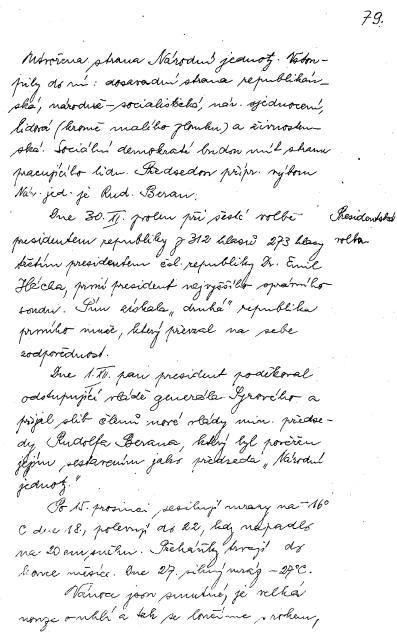 79.
Utvořena strana Národní jednoty. Vstou-
pily do ní: dosavadní strana republikán-
ská, národně-socialistická, nár. sjednocení,
lidová (kromě malého zlomku) a živnosten-
ská. Sociální demokraté budou mít stranu
pracujícího lidu. Předsedou přípr. výboru
Nár. jed. je Rud. Beran.
Dne 30. XI. zvolen při šesté volbě
Presidentská
presidentem republiky z 312 hlasů 273 hlasy
volba
třetím presidentem čsl. republiky Dr. Emil
Hácha, první president nejvyššího správního
soudu. Tím získala „druhá" republika
prvního muže, který převzal na sebe
zodpovědnost.
Dne 1. XII. pan president poděkoval
odstupující vládě generála Syrového a
přijal slib členů nové vlády min. předse-
dy Rudolfa Berana, který byl pověřen
jejím sestavením jako předseda „Národní
jednoty."
Po 15. prosinci sesilují mrazy na -16°
C d. 18., polevují do 22., kdy napadlo
na 20 cm sněhu. Přeháňky trvají do
konce měsíce. Dne 27. silný mráz -27°C.
Vánoce jsou smutné, je velká
nouze o uhlí a tak se loučíme s rokem,